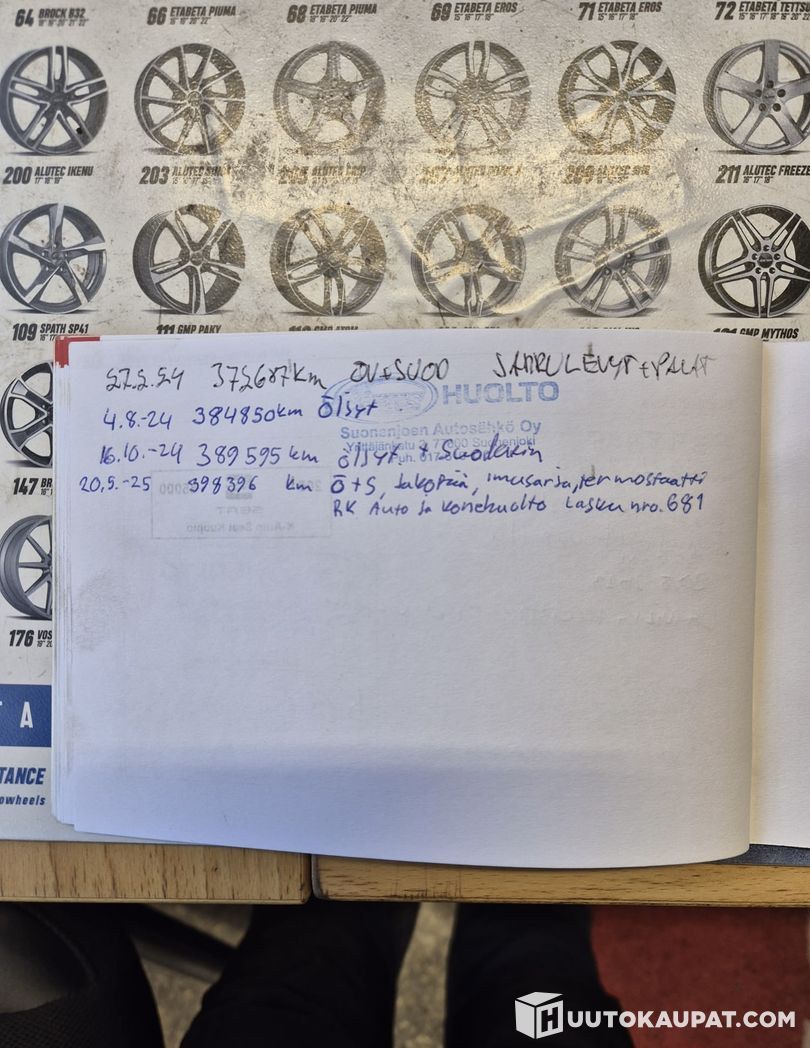 64 BROCK B32
66 ETABETA PIUMA
68 ETABETA PIUMA
69 ETABETA EROS
71 ETABETA EROS
72 ETABETA TETTSU
200 ALUTEC IKENU
203 ALUTEC
211 ALUTEC FREEZE
109 SPATH SP41
111 GMP PAKY
GMP MYTHOS
147 BR
176 VOS
TA
TANCE
owheels
27.2.24 372687km ÖV+SUOD JARRULEVYT+PALAT
HUOLTO
4.8.-24 384850km Öljyt
Suonenjoen Autosähkö Oy
77600 Suonenjoki
Puh. 017
16.10.-24 389595km öljyt + suodatin
20.5.-25 398396 km Ö+S, Jakopää, imusarja, termostaatti
RK Auto ja Konehuolto Lasku nro. 681
SEAT
K-Auto Seat Kuopio
HUUTOKAUPAT.COM